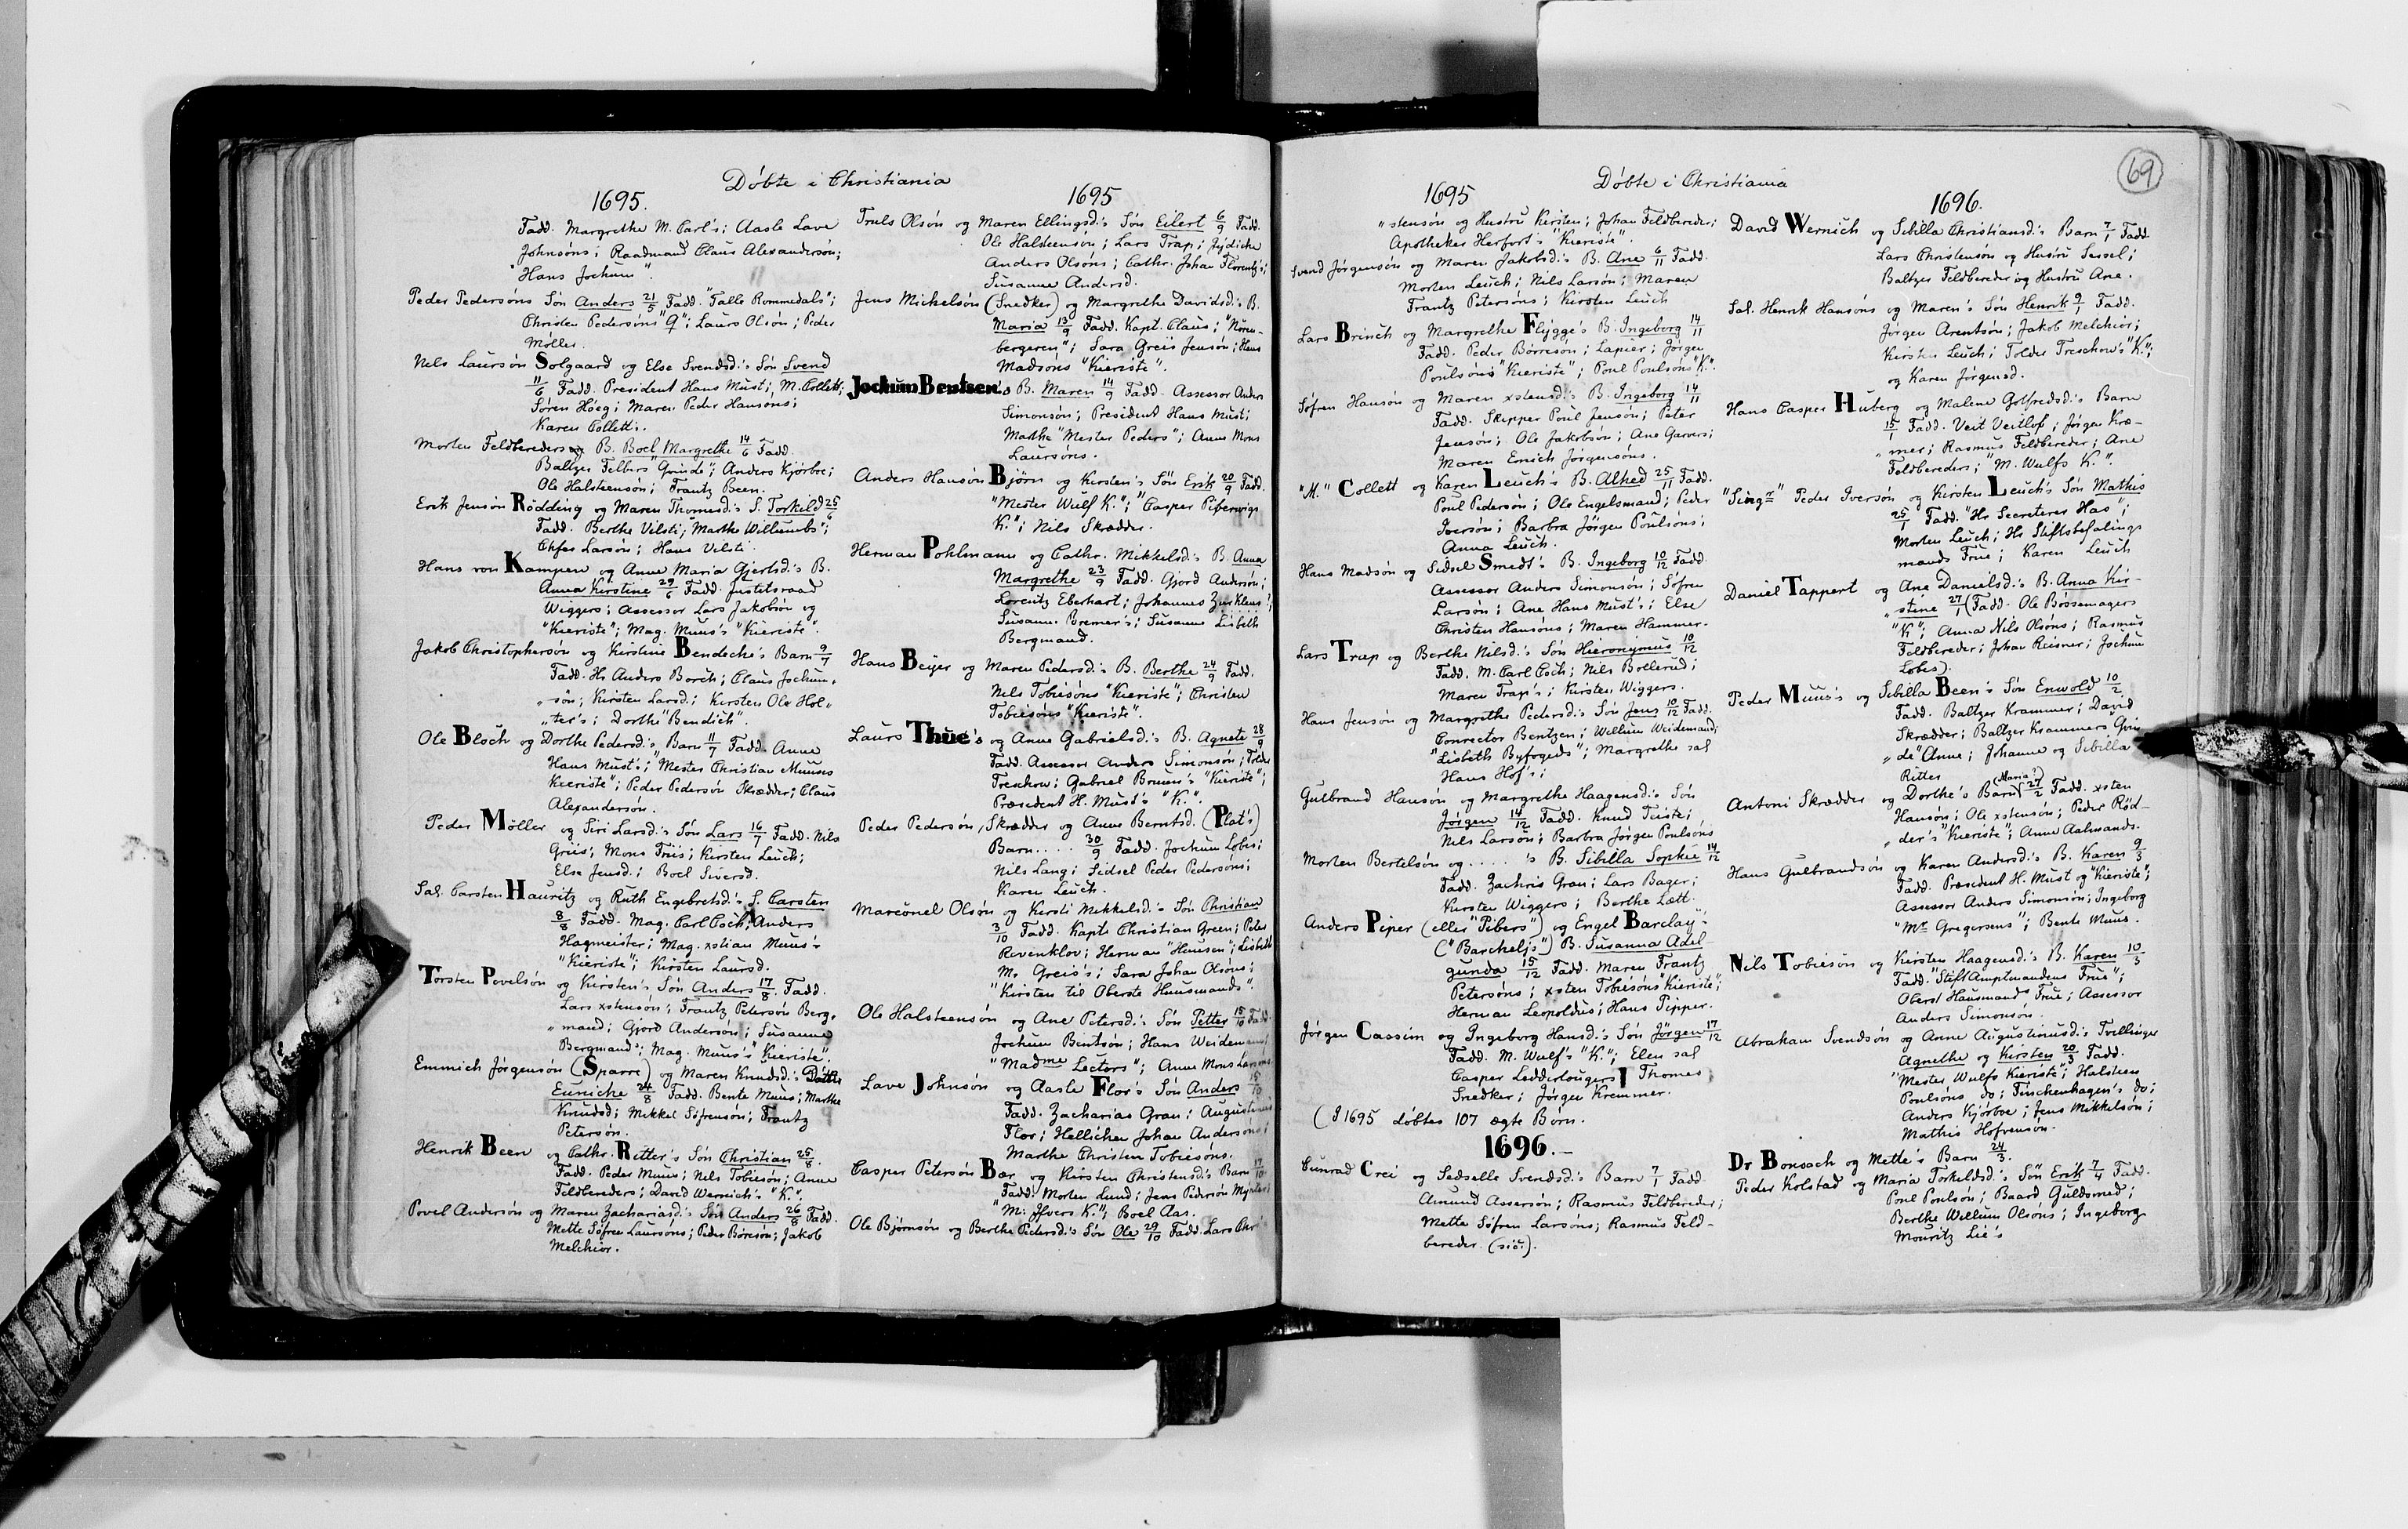 Döbte i Christiania
1695.
Fadd. Margrethe M. Carl's; Aasle Lave
Johnsöns; Raadmand Claus Alexandersön;
"Hans Jochum".
Peder Pedersöns Sön Anders 21/5 Fadd. "Talle Rommedals";
Christen Pedersöns "Q"; Laurs Olsön; Peder
Möller.
Nels Laursön Solgaard og Else Svendsd.'s Sön Svend
11/6 Fadd. President Hans Must; M. Collett;
Sören Höeg; Maren Peder Hansöns;
Karen Collett.
Morten Feldbereders B. Boel Margrethe 14/6 Fadd.
Baltzer Felbers "Qvinde"; Anders Kjörboe;
Ole Halsteensön; Frantz Been.
Erik Jensön Rödding og Maren Thomesd.'s S. Torkild 25/6
Fadd. Berthe Vilsti; Marthe Willumbs;
Larsön; Hans Vilsti.
Hans von Kampen og Anne Maria Gjertsd.'s B.
Anna Kirstine 29/6 Fadd. Justitsraad
Wiggers; Assessor Lars Jakobsön og
"Kieriste"; Mag. Muus's "Kieriste".
Jakob Christophersön og Kirstine Bendeche's Barn 9/7
Fadd. Hr Anders Borch; Claus Jochum,
"sön; Kirsten Larsd.; Kirsten Ole Hol"
"ter's; Dorthe "Bendich".
Ole Bloch og Dorthe Pedersd.'s Barn 11/7 Fadd. Anne
Hans Must's; "Mester Christian Muuses
Kieriste"; Peder Pedersön Skrædder; Claus
Alexandersön.
Peder Möller og Siri Larsd.'s Sön Lars 16/7 Fadd. Nils
Griis; Mons Friis; Kirsten Leuch;
Else Jensd.; Boel Siversd.
Sal. Carsten Hauritz og Ruth Engebretsd.'s S. Carsten
8/8 Fadd. Mag. Carl Coch; Anders
Hagmeister; Mag. xstian Muus's
"Kieriste"; Kirsten Laursd.
Torsten Povelsön og Kirsten's Sön Anders 17/8. Fadd.
Lars xstensön; Frantz Petersön Berg,
"mand; Gjord Andersön; Susanne
Bergmand; Mag. Muus's "Kieriste".
Emmich Jörgensön (Sparre) og Maren Knudsd.'s Datter
Eunicke 24/8 Fadd. Bente Muus; Marthe
Knudsd; Mikkel Söfrensön; Frantz
Petersön.
Henrik Been og Cathr. Retter's Sön Christian 25/8.
Fadd. Peder Muus; Nels Tobiesön; Anne
Feldbereders; David Wernich's "K."
Povel Andersön og Maren Zachariasd.'s Sön Anders 26/8 Fadd.
Mette Söfren Laursöns; Peder Böresön; Jakob
Melchior.
1695
Truls Olsön og Maren Ellingsd.'s Sön Eilert 6/9 Fadd.
Ole Halsteensön; Lars Trap; Jydiche
Anders Olsöns; Cathr. Johan Florentz's;
Susanne Andersd.
Jens Mickelsön (Snedker) og Margrethe Davidsd.'s B.
Maria 13/9 Fadd. Kapt. Claus; "Nüren-
bergeren"; Sara Greis Jensön; Hans
Madsöns "Kieriste".
Jochum Bentsen's B. Maren 14/9 Fadd. Assessor Anders
Simonsön; President Hans Must;
Marthe "Mester Peders"; Anne Mons
Laursöns.
Anders Hansön Björn og Kirsten's Sön Erik 20/9 Fadd.
"Mester Wulf K."; "Casper Pibervigs
K."; Nils Skrædder.
Herman Pohlmann og Cathr. Mikkelsd.'s B. Anna
Margrethe 23/9 Fadd. Gjord Andersön;
Lorentz Eberhart; Johannes Zurkleus;
Susann. Bremer's; Susanne Lisbeth
Bergmand.
Hans Beyer og Maren Pedersd.'s B. Berthe 24/9 Fadd.
Nels Tobiesöns "Kieriste"; Christen
Tobiesöns "Kieriste".
Laurs Thue's og Anne Gabrielsd.'s B. Agnete 28/9
Fadd. Assessor Anders Simonsön; Tolder
Treschow; Gabriel Bruun's "Kieriste";
Præsident H. Must's "K."
Peder Pedersön, Skrædder og Anne Berntsd. (Plat's)
Barn.... 30/9 Fadd. Jochum Lobes;
Nils Lang; Sidsel Peder Pedersöns;
Karen Leuch.
Marconel Olsön og Kersti Mekkelsd.'s Sön Christian
3/10 Fadd. Kapt. Christian Green; Peter
Revenklov; Herman "Heusen"; Lisbeth
M. Greis's; Sara Johan Olsöns;
"Kirsten til Oberste Huusmands".
Ole Halsteensön og Ane Petersd.'s Sön Petter 15/10 Fadd.
Jochum Bentsön; Hans Weideman;
"Madme Lectors"; Anne Mons Larsöns
Lave Johnsön og Aasle Flor's Sön Anders 15/10
Fadd. Zacharias Gran; Augustinus
Flor; Hellichen Johan Andersöns;
Marthe Christen Tobiesöns.
Casper Petersön Bær og Kirsten Christensd.'s Barn 17/10
Fadd. Morten Lund; Jens Pedersön
"M. Ifvers K."; Boel Aas.
Ole Björnsön og Berthe Pedersd.'s Sön Ole 29/10 Fadd. Lars Chr
Döbte i Christiania
69
1695
"stensön og Hustru Kirsten; Johan Feldbereder;
Apotheker Herfort's "Kieriste".
Svend Jörgensön og Maren Jakobsd.'s B. Ane 6/11 Fadd.
Morten Leuch; Nils Larsön; Maren
Frantz Petersöns; Kirsten Leuch
Lars Brinch og Margrethe Flygge's B. Ingeborg 14/11
Fadd. Peder Börresön; Lapier; Jörgen
Poulsöns "Kieriste"; Poul Poulsöns "K."
Söfren Hansön og Maren xstensd.'s B. Ingeborg 14/11
Fadd. Skipper Poul Jensön; Peter
Jensön; Ole Jakobsön; Ane Garvers;
Maren Emich Jörgensöns.
"M." Collett og Karen Leuch's B. Alhed 25/11 Fadd.
Poul Pedersön; Ole Engelsmand; Peder
Iversön; Barbra Jörgen Poulsöns;
Anna Leuch.
Hans Madsön og Sidsel Smedt's B. Ingeborg 10/12 Fadd.
Assessor Anders Simonsön; Söfren
Larsön; Ane Hans Must's; Else
Christen Hansöns; Maren Hammer.
Lars Trap og Berthe Nilsd.'s Sön Hieronymus 10/12
Fadd. M. Carl Coch; Nils Bollerud;
Maren Trap's; Kirsten Wiggers.
Hans Jensön og Margrethe Pedersd.'s Sön Jens 10/12 Fadd.
Conrector Bentzen; Wellum Weidemand;
"Lisbeth Byfogeds"; Margrethe sal
Hans Hof's;
Gulbrand Hansön og Margrethe Haagensd.'s Sön
Jörgen 14/12 Fadd. Knud Teiste;
Nils Larsön; Barbra Jörgen Poulsöns
Morten Bertelsön og.....'s B. Sibilla Sophie 14/12
Fadd. Zachris Gran; Lars Bager;
Kirsten Wiggers; Berthe Lætt.
Anders Piper (eller "Pibers") og Engel Barclay
("Barchelj's") B. Susanna Adel-
gunda 15/12 Fadd. Maren Frantz
Petersöns; xsten Tobiesöns "Kieriste";
Herman Leopoldus; Hans Pipper.
Jörgen Cassim og Ingeborg Hansd.'s Sön Jörgen 17/12
Fadd. M. Wulf's "K."; Elen sal
Casper Ledderlougers; Thomes
Snedker; Jörgen Kremmer.
(I 1695 döbtes 107 ægte Börn.
1696.-
Cunrad Crei og Sedselle Svendsd.'s Barn 7/1 Fadd.
Amund Assersön; Rasmus Feldbereder;
Mette Söfren Larsöns; Rasmus Feld-
bereder (sic!).
1696.
David Wernich og Sibilla Christiansd.'s Barn 7/1 Fadd.
Lars Christensön og Hustru Sessel;
Baltzer Feldbereder og Hustru Ane.
Sal. Henrik Hansöns og Maren's Sön Henrik 9/1 Fadd.
Jörgen Arentsön; Jakob Melchior;
Kirsten Leuch; Tolder Treschow's "K.";
og Karen Jörgensd.
Hans Casper Huberg og Malene Gotfredsd.'s Barn
15/1 Fadd. Veit Veitlof; Jörgen Kræ-
"mer; Rasmus Feldbereder; Ane
Feldbereders; "M. Wulfs K."
Peder Iversön og Kirsten Leuch's Sön Mathis
25/1 Fadd. "Hr. Secreterer Has";
Morten Leuch; Hr. Stiftsbefalings
mands Frue; Karen Leuch
Daniel Tappert og Ane Danielsd.'s B. Anna Kir-
"stine 27/1 (Fadd. Ole Bössemagers
"K"; Anna Nils Olsöns; Rasmus
Feldbereder; Johan Reisner; Jochum
Lobes).
Peder Muus's og Sibilla Been's Sön Enwold 10/2
Fadd. Baltzer Krammer; David
Skrædder; Baltzer Krammers "Qvin
"de" Anne; Johanne og Sibilla
Ritter
Antoni Skrædder og Dorthe's Barn (Maria?) 27/2 Fadd. xsten
Hansön; Ole xstensön; Peder Röd-
"der's "Kieriste"; Anne Aalmands.
Hans Gulbrandsön og Karen Andersd.'s B. Karen 9/3
Fadd. Præsident H. Must og "Kieriste";
Assessor Anders Simonsön; Ingeborg
"Mr Gregersens"; Bente Muus.
Nils Tobiesön og Kirsten Haagensd.'s B. Karen 10/3
Fadd. "Stiftamptmandens Frue";
Oberst Hausmands Frue; Assessor
Anders Simonsön.
Abraham Svendsön og Anne Augustinusd.'s Tvellinger
Agnethe og Kirsten 20/3 Fadd.
"Mester Wulfs Kieriste"; Halsteen
Poulsöns do; Finckenhagen's do;
Anders Kjörboe; Jens Mikkelsön;
Mathis Hofvensön.
Dr Bonsach og Mette's Barn 24/3.
Peder Kolstad og Maria Torkeldsd.'s Sön Erik 7/4 Fadd.
Poul Poulsön; Baard Guldsmed;
Berthe Wellum Olsöns; Ingeborg
Mouritz Lie's